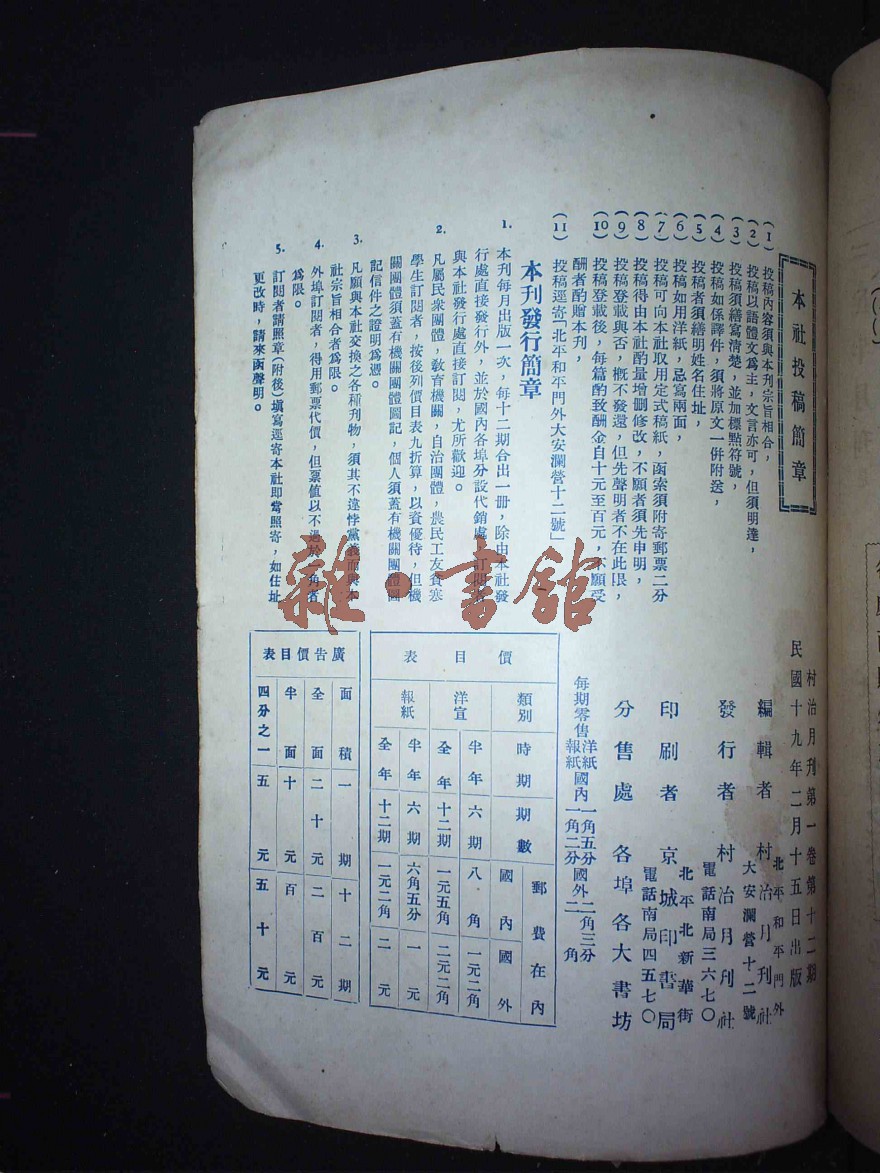 本社投稿簡章
(1) 投稿內容須與本刊宗旨相合，
(2) 投稿以語體文爲主，文言亦可，但須明達，
(3) 投稿須繕寫清楚，並加標點符號，
(4) 投稿如係譯件，須將原文一併附送，
(5) 投稿者須繕明姓名住址，
(6) 投稿如用洋紙，忌寫兩面，
(7) 投稿可向本社取用定式稿紙，函索須附寄郵票二分
(8) 投稿得由本社酌量增删修改，不願者須先申明，
(9) 投稿登載與否，槪不發還，但先聲明者不在此限，
(10) 投稿登載後，每篇酌致酬金自十元至百元，不願受
酬者酌贈本刊，
(11) 投稿逕寄「北平和平門外大安瀾營十二號」
本刊發行簡章
1. 本刊每月出版一次，每十二期合出一册，除由本社發
行處直接發行外，並於國內各埠分設代銷處，訂閱者
與本社發行處直接訂閱，尤所歡迎。
2. 凡屬民衆團體，敎育機關，自治團體，農民工友貧寒
學生訂閱者，按後列價目表九折算，以資優待，但機
關團體須蓋有機關團體圖記，個人須蓋有機關團體圖
記信件之證明爲憑。
3. 凡願與本社交換之各種刊物，須其不違悖黨義而與本
社宗旨相合者爲限。
4. 外埠訂閱者，得用郵票代價，但票值以不過於一角者
爲限。
5. 訂閱者請照章(附後)填寫逕寄本社即當照寄，如住址
更改時，請來函聲明。
村治月刊第一卷第十二期
民國十九年二月十五日出版
編輯者 村治月刊社
北平和平門外
大安瀾營十二號
發行者 村治月刊社
電話南局三六七〇
印刷者 京城印書局
北平北新華街
電話南局四五七〇
分售處 各埠各大書坊
每期零售 洋紙國內一角五分國外二角三分
報紙 一角二分 二角
價目表
類別 時期 期數 郵費在內 國內 國外
洋宣 半年 六期 八角 一元二角
全年 十二期 一元五角 二元二角
報紙 半年 六期 六角五分 一元
全年 十二期 一元二角 二元
廣告價目表
面積 一期 十二期
全面 二十元 二百元
半面 十元 百元
四分之一 五元 五十元
雜·書館